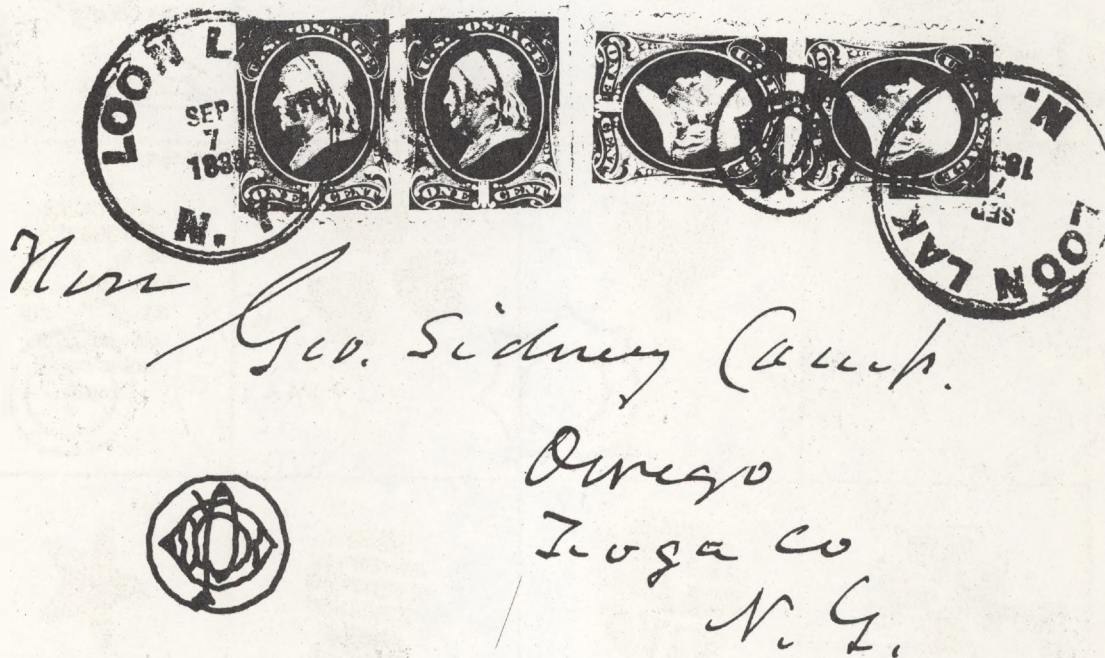 LOON L
SEP
7
188
N. Y
U.S. POSTAGE
ONE CENT
U.S. POSTAGE
ONE CENT
LOON LAK
SEP
7
18
N.
Hon
Geo. Sidney Camp.
Owego
Tioga Co
N. Y.